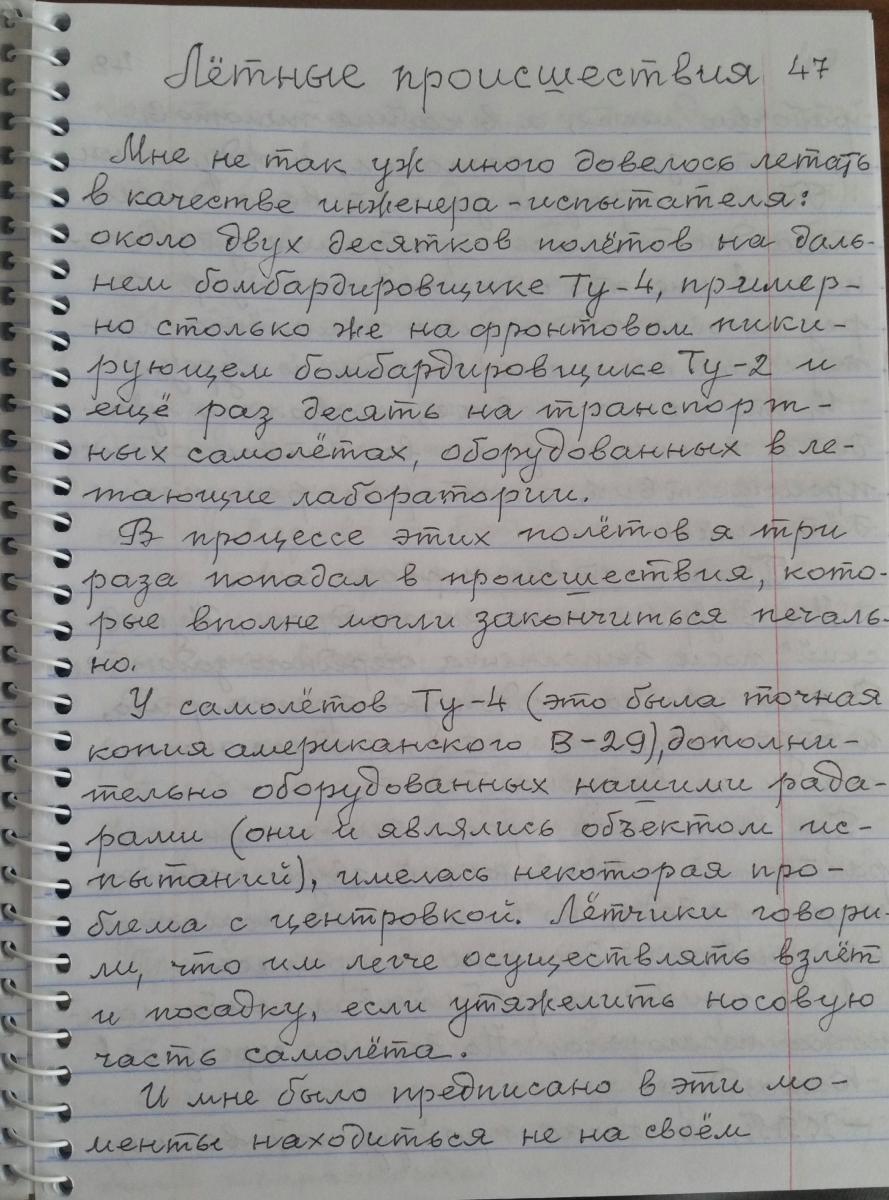 Лётные происшествия 47
Мне не так уж много довелось летать
в качестве инженера-испытателя:
около двух десятков полётов на даль-
нем бомбардировщике Ту-4, пример-
но столько же на фронтовом пики-
рующем бомбардировщике Ту-2 и
ещё раз десять на транспорт-
ных самолётах, оборудованных в ле-
тающие лаборатории.
В процессе этих полётов я три
раза попадал в происшествия, кото-
рые вполне могли закончиться печаль-
но.
У самолётов Ту-4 (это была точная
копия американского В-29), дополни-
тельно оборудованных нашими рада-
рами (они и являлись объектом ис-
пытаний), имелась некоторая про-
блема с центровкой. Лётчики говори-
ли, что им легче осуществлять взлёт
и посадку, если утяжелить носовую
часть самолёта.
И мне было предписано в эти мо-
менты находиться не на своём